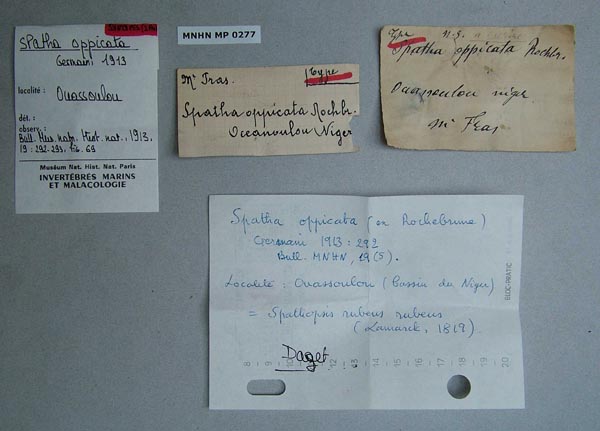 Spatha oppicata
Germain 1913
localité : Ouassoulou
dét. :
observ. :
Bull. Mus. natn. Hist. nat., 1913,
19 : 292-293, fig. 69
Muséum Nat. Hist. Nat. Paris
INVERTÉBRÉS MARINS
ET MALACOLOGIE
MNHN MP 0277
Mr Fras. Type
Spatha oppicata Rochbr.
Oceanoulou Niger
Type n.g.
Spatha oppicata Rochbr.
Ouanoulou niger
Mr Fras
Spatha oppicata (in Rochebrune)
Germain 1913 : 292
Bull. MNHN, 19 (5).
Localité : Ouassoulou (Bassin du Niger)
= Spathopsis rubens rubens
(Lamarck, 1819)
Daget.
8 - 9 - 10 - 11 - 12 - 13 - 14 - 15 - 16 - 17 - 18 - 19 - 20
BLOC-PRATIC